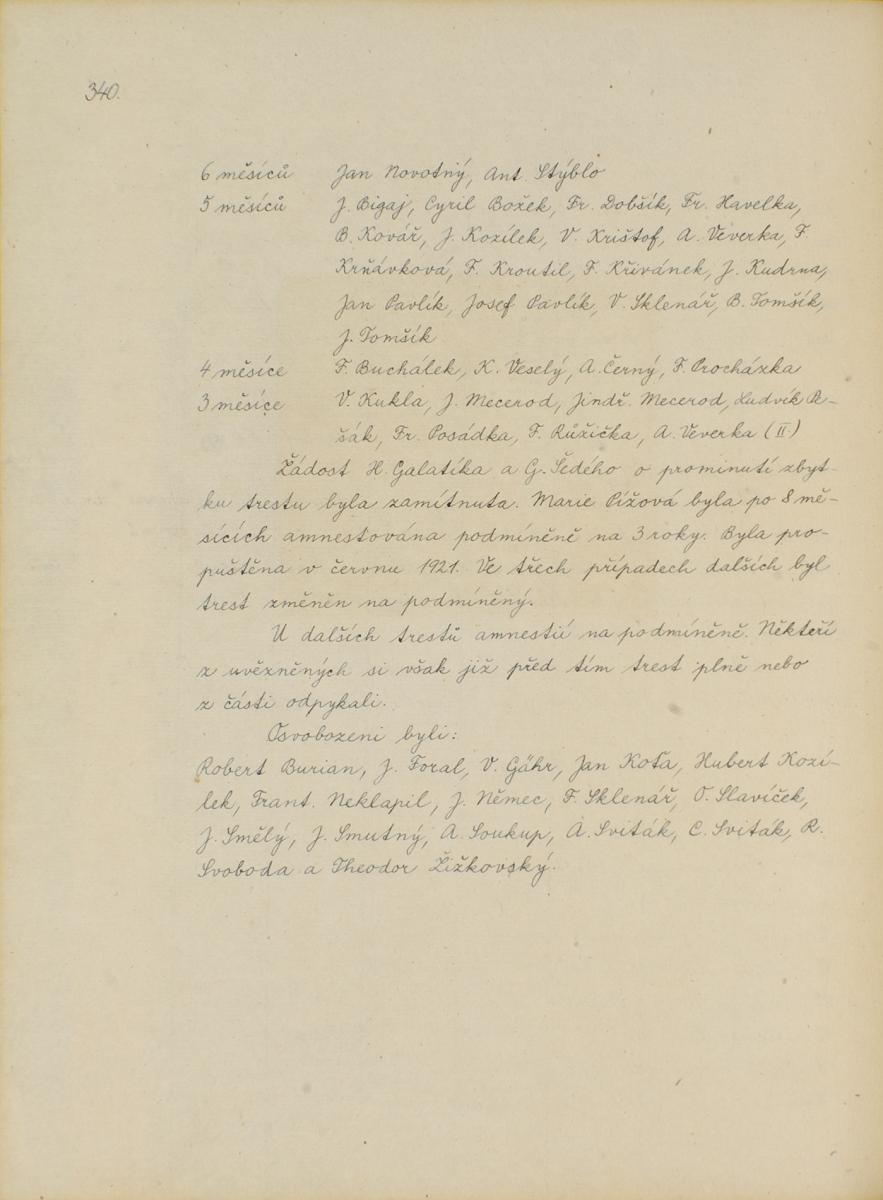 340.
6 měsíců Jan Novotný, Ant. Stýblo
5 měsíců J. Bigaj, Cyril Božek, Fr. Dobšík, Fr. Havelka,
B. Kovář, J. Kozílek, V. Krištof, A. Veverka, F.
Krňávková, F. Kroutil, F. Křivánek, J. Kudrna,
Jan Pavlík, Josef Pavlík, V. Sklenář, B. Tomšík,
J. Tomšík
4 měsíce F. Buchálek, K. Veselý, A. Černý, F. Procházka
3 měsíce V. Kukla, J. Mecerod, Jindř. Mecerod, Ludvík Pe-
šák, Fr. Posádka, F. Růžička, A. Veverka (II.)
Žádost H. Galatíka a G. Šedého o prominutí zbyt-
ku trestu byla zamítnuta. Marie Pížová byla po 8 mě-
sících amnestována podmíněně na 3 roky. Byla pro-
puštěna v červnu 1921. Ve třech případech dalších byl
trest změněn na podmíněný.
U dalších trestů amnestií na podmíněně. Někteří
z uvězněných si však již před tím trest plně nebo
z části odpykali.
Osvobozeni byli:
Robert Burian, J. Foral, V. Gähr, Jan Koťa, Hubert Kozí-
lek, Frant. Neklapil, J. Němec, F. Sklenář, O. Slavíček,
J. Smělý, J. Smutný, A. Soukup, A. Sviták, C. Sviták, R.
Svoboda a Theodor Žižkovský.